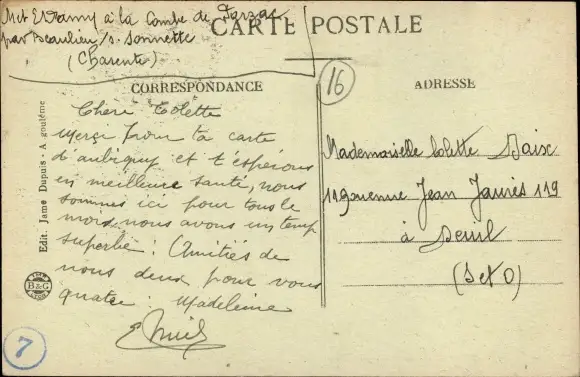 CARTE POSTALE
à la Combe de Tarzac
par Beaulieu s. Sonnette
(Charente)
16
CORRESPONDANCE
ADRESSE
Chère Colette
Merçi pour ta carte
d'aubigny et t'espérons
en meilleure santé, nous
sommes ici pour tous le
mois nous avons un temp
superbe : Amitiés de
nous deux pour vous
quatre : Madeleine
Mademoiselle Colette
119 avenue Jean Jaurès 119
à Deuil
(S et O)
Edit. Jame Dupuis - Angoulême
B&G
7